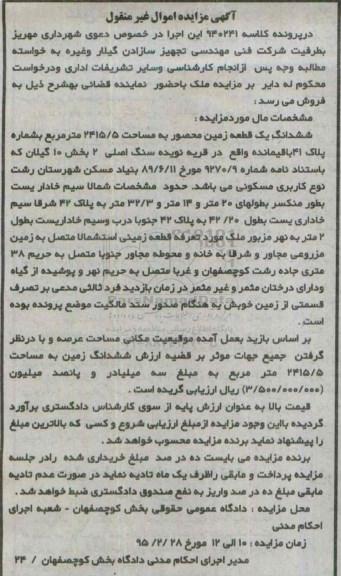 آگهی مزایده اموال غیر منقول
درپرونده کلاسه ۹۴۰۲۴۱ این اجرا در خصوص دعوی شهرداری مهریز
بطرفیت شرکت فنی مهندسی تجهیز سازادن گیلار وغیره به خواسته
مطالبه وجه پس ازانجام کارشناسی وسایر تشریفات اداری ودرخواست
محکوم له دایر بر مزایده ملک باحضور نماینده قضائی بهشرح ذیل به
فروش می رسد :
مشخصات مال موردمزایده :
ششدانگ یک قطعه زمین محصور به مساحت ۲۴۱۵/۵ مترمربع بشماره
پلاک ۴۱باقیمانده واقع در قریه نویده سنگ اصلی ۲ بخش ۱۰ گیلان که
باستناد نامه شماره ۹۲۷۰/۹ مورخ ۸۹/۶/۱۱ بنیاد مسکن شهرستان رشت
نوع کاربری مسکونی می باشد. حدود مشخصات شمالا سیم خادار یست
بطور منکسر بطولهای ۲۰ متر و ۱۴ متر و ۳۲/۳ متر به پلاک ۴۲ شرقا سیم
خاداری یست بطول ۴۲/۲۰ به پلاک ۴۲ جنوبا درب وسیم خاداریست بطول
۲ متر به نهر مزبور ملک مورد تعرفه قطعه زمینی استشمالا متصل به زمین
مزروعی مجاور و شرقا به خانه و محوطه مجاور جنوبا متصل به حریم ۳۸
متری جاده رشت کوچصفهان و غربا متصل به حریم نهر و پوشیده از گیاه
ودارای درختان مثمر و غیر مثمر در زمان بازدید فرد ثالثی مدعی بر تصرف
قسمتی از زمین خویش به هنگام صدور سند مالکیت موضع پرونده بوده
است .
بر اساس بازید بعمل آمده موقیعیت مکانی مساحت عرصه و با درنظر
گرفتن جمیع جهات موثر بر قضیه ارزش ششدانگ زمین به مساحت
۲۴۱۵/۵ متر مربع به مبلغ سه میلیادر و پانصد میلیون
(۳/۵۰۰/۰۰۰/۰۰۰) ریال ارزیابی گریده است .
قیمت بالا به عنوان ارزش پایه از سوی کارشناس دادگستری برآورد
گردیده بااین وجود مزایده ازمبلغ ارزیابی شروع و کسی که بالاترین مبلغ
را پیشنهاد نماید برنده مزایده محسوب خواهد شد .
برنده مزایده می بایست ده در صد مبلغ خریداری شده رادر جلسه
مزایده پرداخت و مابقی راظرف یک ماه تادیه نماید در صورت عدم تادیه
مابقی مبلغ ده در صد واریز به نفع صندوق دادگستری ضبط خواهد شد .
محل مزایده : دادگاه عمومی حقوقی بخش کوچصفهان - شعبه اجرای
احکام مدنی
زمان مزایده : ۱۰ الی ۱۲ مورخ ۲۸ /۲/ ۹۵
مدیر اجرای احکام مدنی دادگاه بخش کوچصفهان / ۲۴